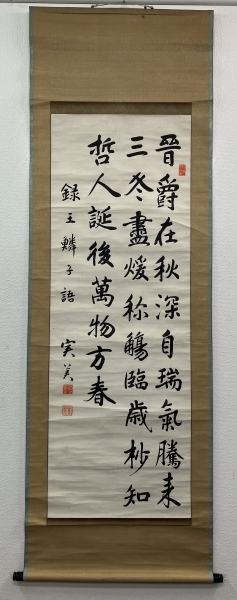 晉爵在秋深自瑞氣騰来
三冬盡煖称觴臨歳杪知
哲人誕後萬物方春
録王鱗子語 実美